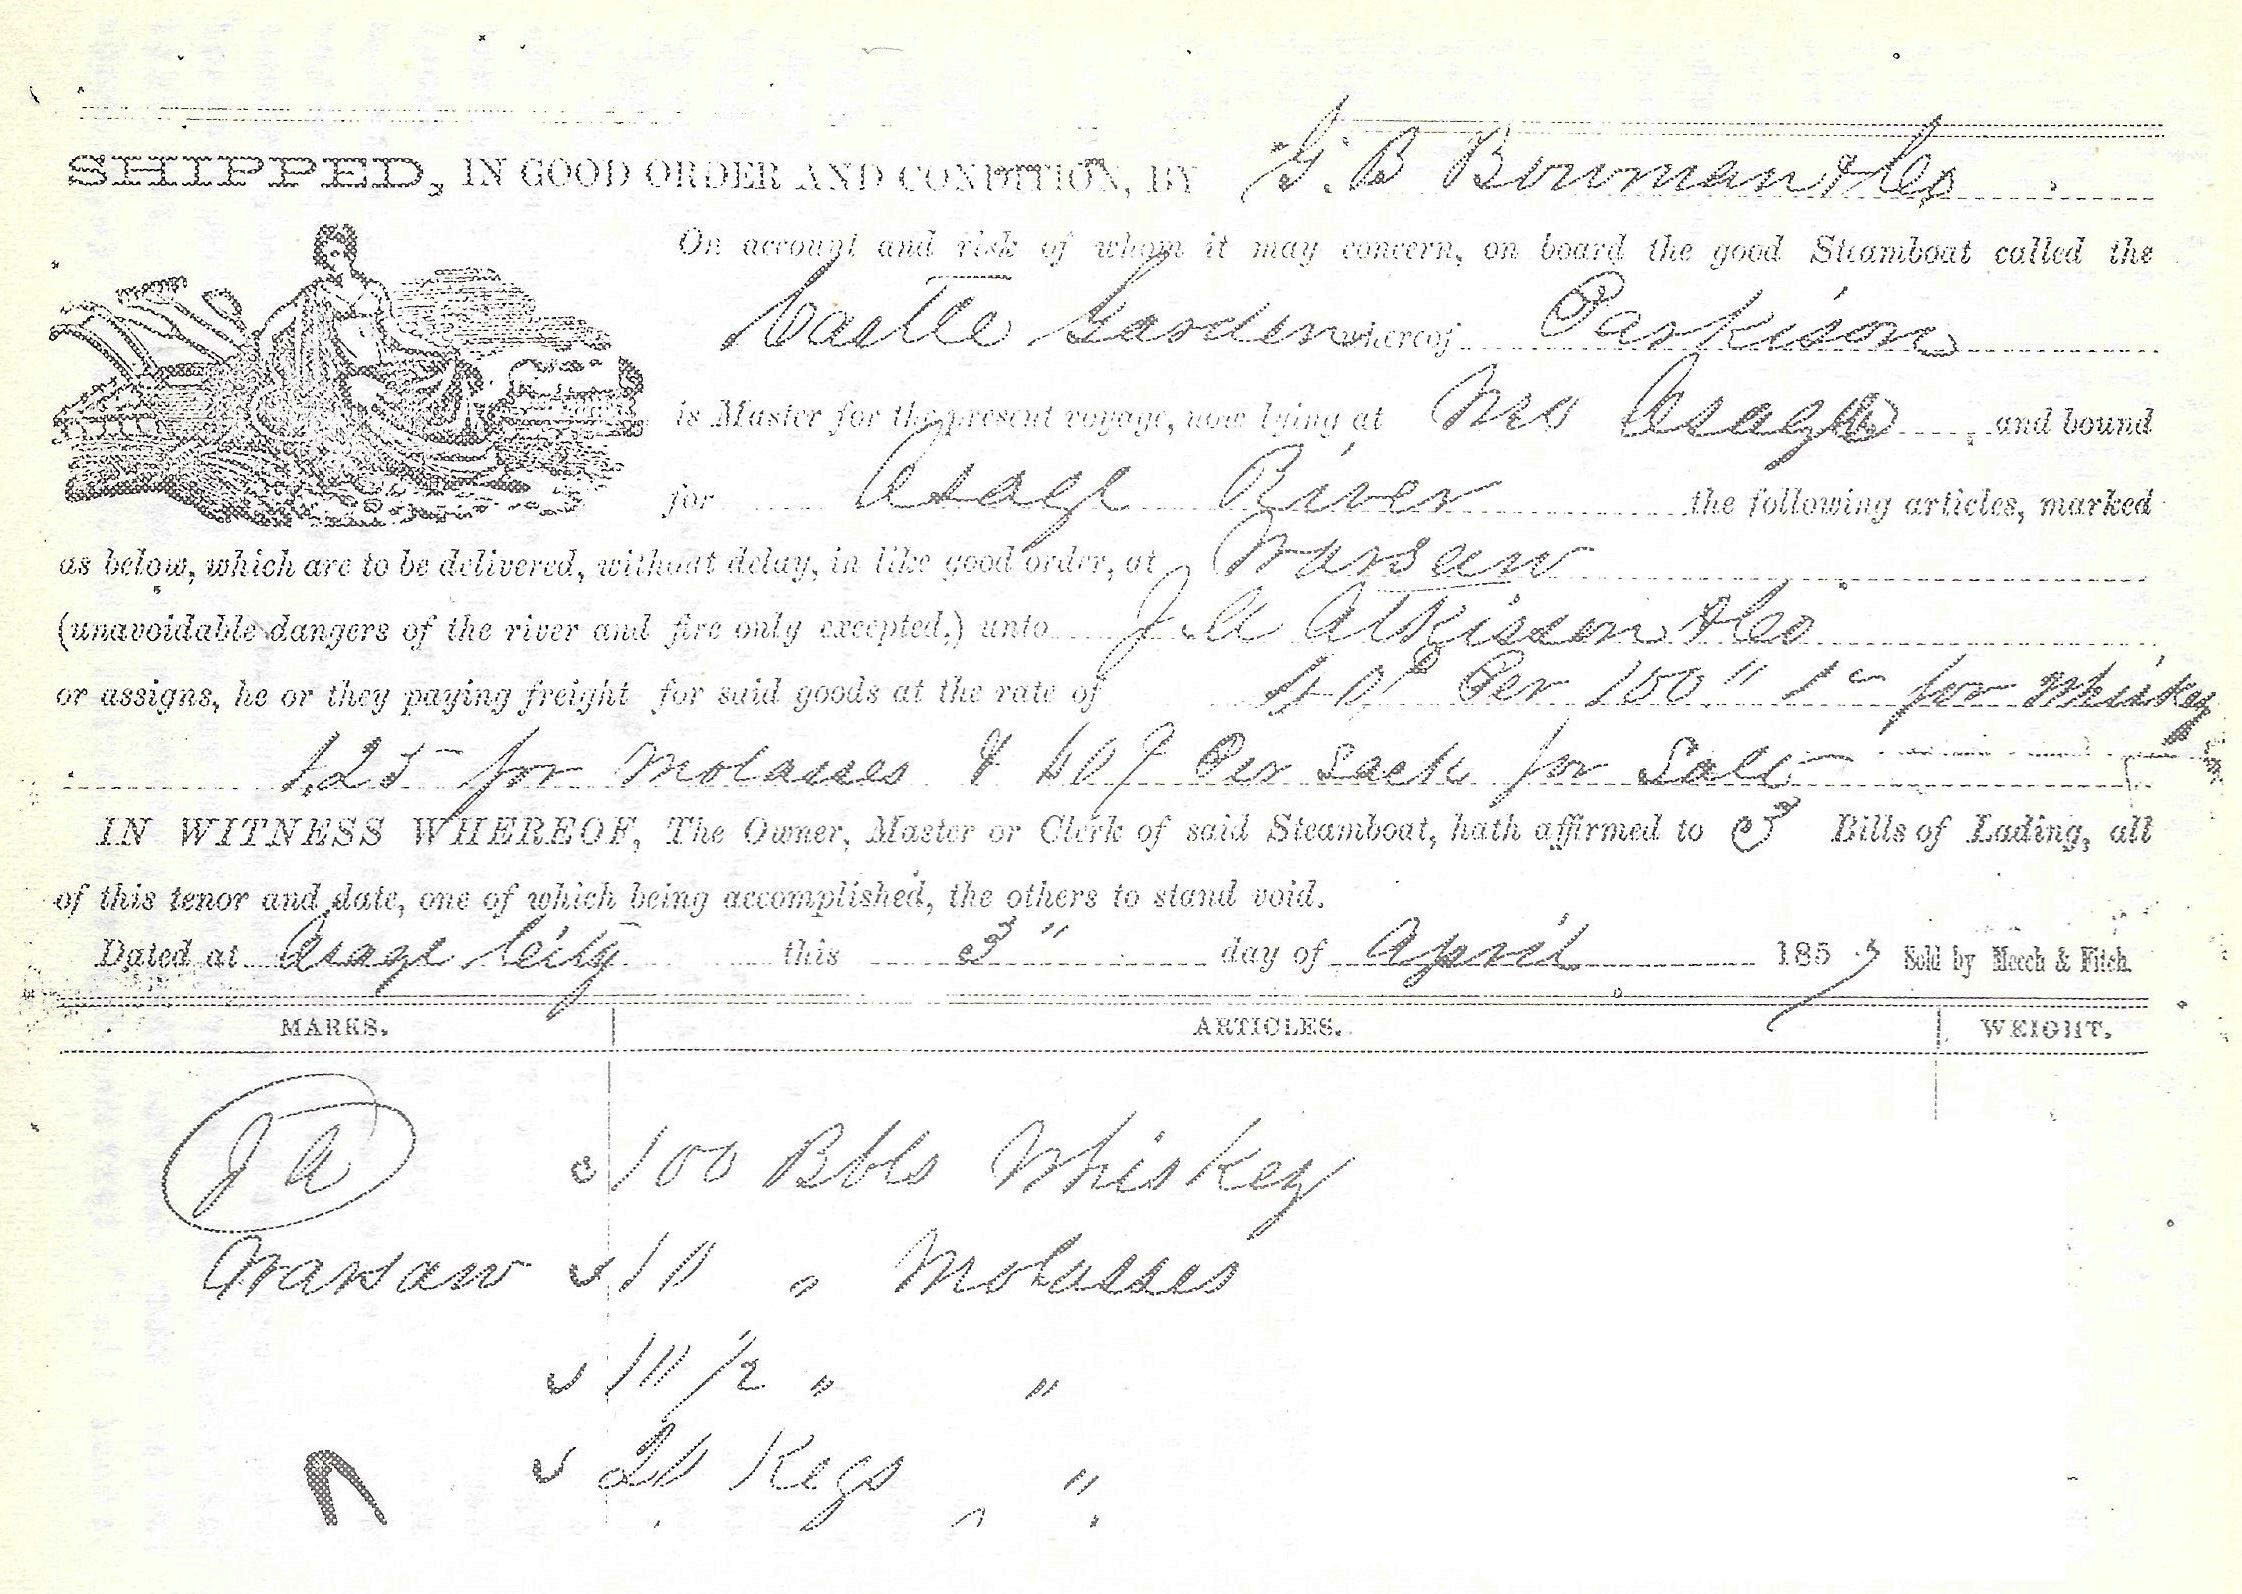 SHIPPED, IN GOOD ORDER AND CONDITION, BY G. B Bowman & Co
On account and risk of whom it may concern, on board the good Steamboat called the
Castle Garden whereof Parkison
is Master for the present voyage, now lying at Mo Osage, and bound
for Osage River the following articles, marked
as below, which are to be delivered, without delay, in like good order, at Warsaw
(unavoidable dangers of the river and fire only excepted,) unto J. A Atkisson & Co
or assigns, he or they paying freight for said goods at the rate of Per 100 " for Whisky
1.25 for Molasses & 60 Per Sack for Salt
IN WITNESS WHEREOF, The Owner, Master or Clerk of said Steamboat, hath affirmed to 3 Bills of Lading, all
of this tenor and date, one of which being accomplished, the others to stand void.
Dated at Osage City this 3" day of April 185 Sold by Meech & Fitch.
MARKS. ARTICLES. WEIGHT.
J A 100 Bbls Whiskey
Warsaw " Molasses
1/2 " "
Kegs "